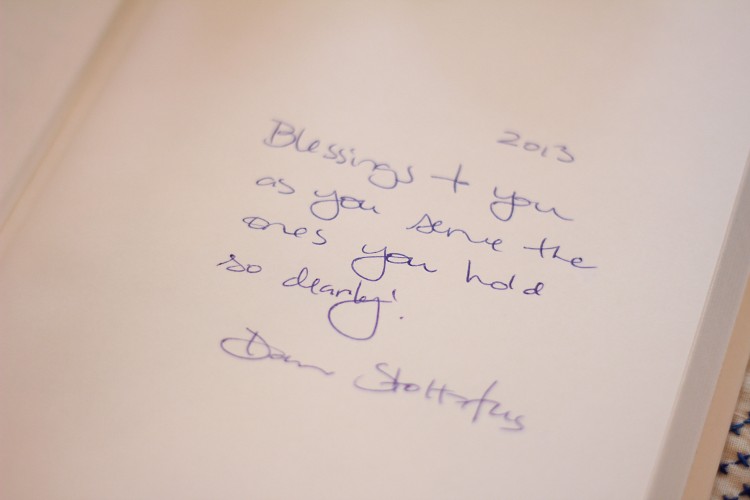 2013
Blessings + you
as you serve the
ones you hold
so dearly!
Stoltzfus